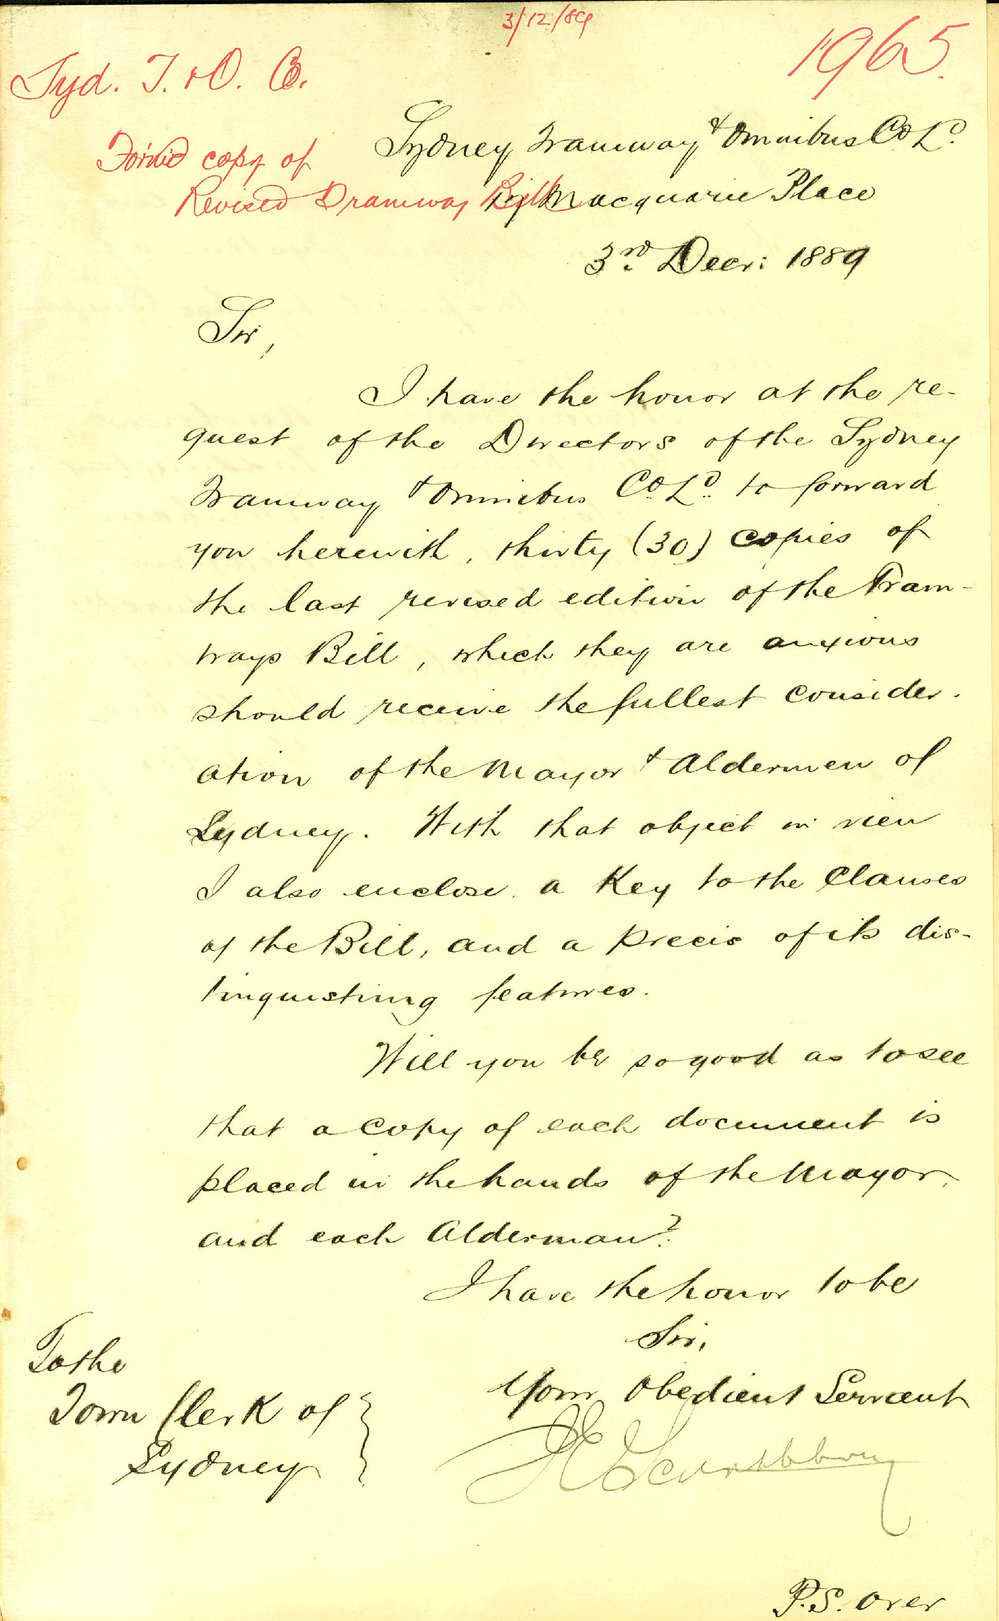 3/12/89
1965.
Syd. T. & O. Co.
Forw'd copy of
Revised Tramway Bill
Sydney Tramway & Omnibus Co. Ld.
Macquarie Place
3rd. Decr: 1889
Sir,
I have the honor at the re-
quest of the Directors of the Sydney
Tramway & Omnibus Co. Ld. to forward
you herewith, thirty (30) copies of
the last revised edition of the Tram-
ways Bill, which they are anxious
should receive the fullest consider-
ation of the Mayor & Aldermen of
Sydney. With that object in view
I also enclose a Key to the Clauses
of the Bill, and a precis of its dis-
tinguishing features.
Will you be so good as to see
that a copy of each document is
placed in the hands of the Mayor,
and each Alderman?
I have the honor to be
Sir,
Your Obedient Servant
To the
Town Clerk of
Sydney
P.S. Over